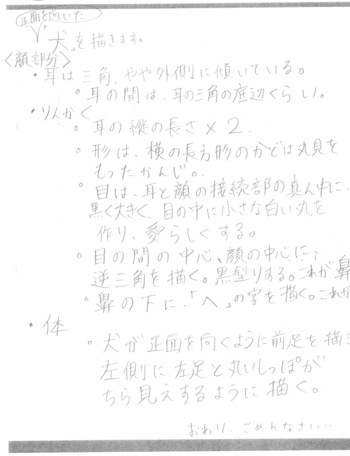 正面を向いた
犬を描きます。
〈顔部分〉
・耳は三角、やや外側に傾いている。
。耳の間は、耳の三角の底辺くらい。
・りんかく
。耳の縦の長さ×2.
。形は、横の長方形のかどは丸貝を
もったかんじ。
。目は、耳と顔の接続部の真ん中に、
黒く大きく、目の中に小さな白い丸を
作り、愛らしくする。
。目の間の中心、顔の中心に、
逆三角を描く。黒塗りする。これが鼻
。鼻の下に、「へ」の字を描く。これが
・体
。犬が正面を向くように前足を描
左側に左足と丸いしっぽが
ちら見えするように描く。
おわり、ごめんなさい…